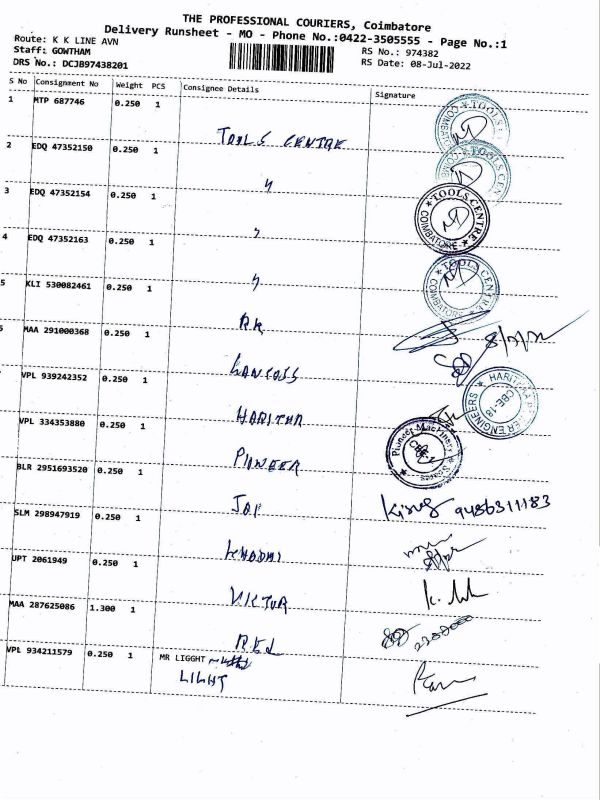 THE PROFESSIONAL COURIERS, Coimbatore
Delivery Runsheet - MO - Phone No.:0422-3505555 - Page No.:1
Route: K K LINE AVN
Staff: GOWTHAM
DRS No.: DCJB97438201
RS No.: 974382
RS Date: 08-Jul-2022
S No Consignment No Weight PCS Consignee Details Signature
1 MTP 687746 0.250 1 TOOLS CENTRE
2 EDQ 47352150 0.250 1 "
3 EDQ 47352154 0.250 1 "
TOOLS CENTRE COIMBATORE
4 EDQ 47352163 0.250 1 "
TOOLS CENTRE
5 KLI 530082461 0.250 1 RK
MAA 291000368 0.250 1
VPL 939242352 0.250 1 HARITHA
ENGINEERS CBE-18
VPL 334353880 0.250 1 PIONEER
Pioneer Machinery
BLR 2951693520 0.250 1 JAI 9486311183
SLM 298947919 0.250 1
UPT 2061949 0.250 1 VICTOR
MAA 287625086 1.300 1 REL
VPL 934211579 0.250 1 MR LIGGHT
LIGHT